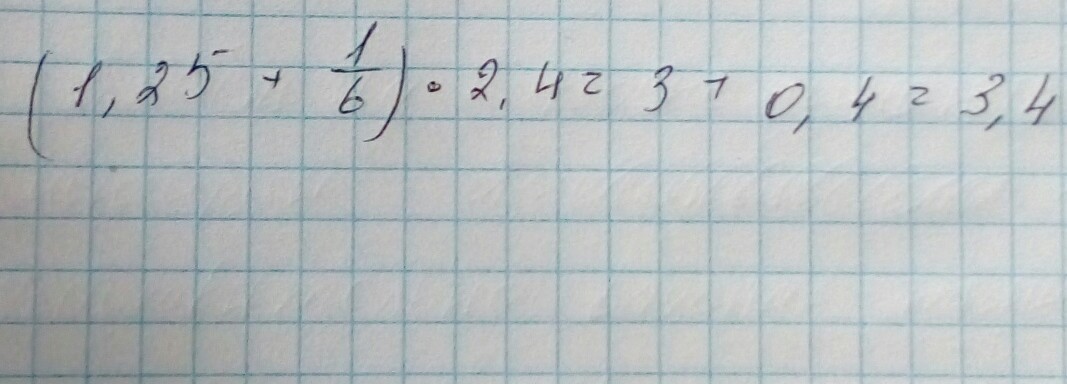 (1,25 + 1/6) · 2,4 = 3 + 0,4 = 3,4